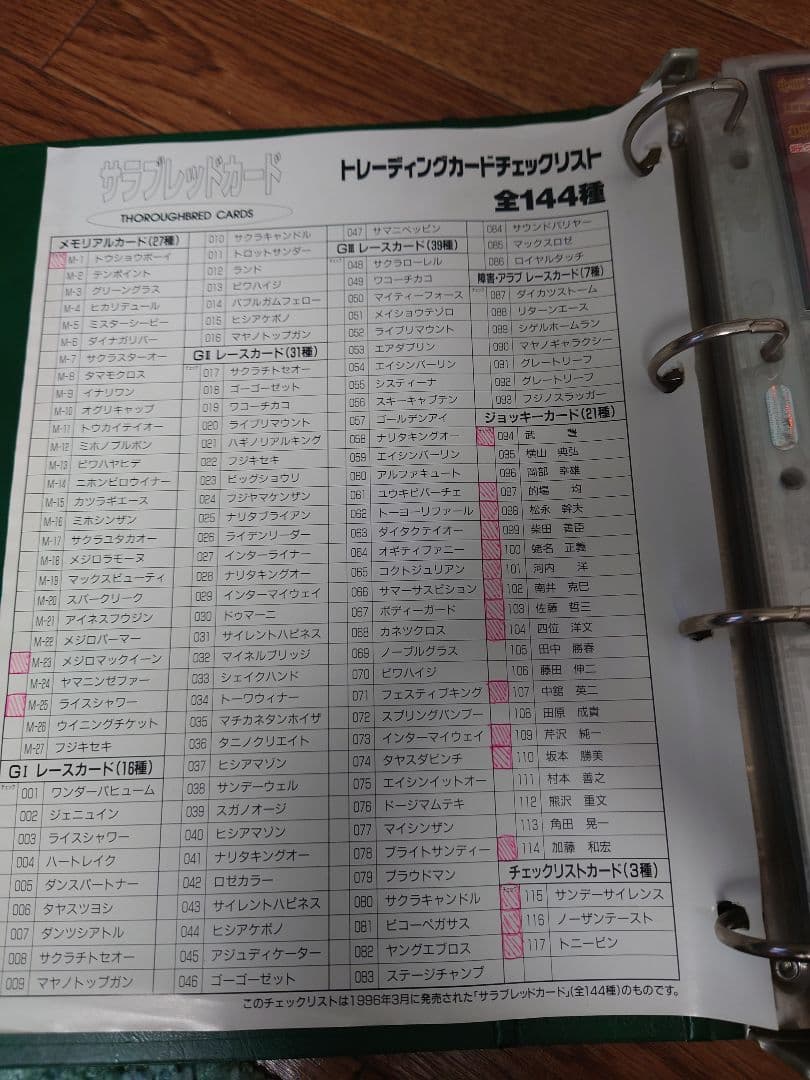 サラブレッドカード
THOROUGHBRED CARDS
トレーディングカードチェックリスト
全144種
メモリアルカード(27種)
M-1 トウショウボーイ
M-2 テンポイント
M-3 グリーングラス
M-4 ヒカリデュール
M-5 ミスターシービー
M-6 ダイナガリバー
M-7 サクラスターオー
M-8 タマモクロス
M-9 イナリワン
M-10 オグリキャップ
M-11 トウカイテイオー
M-12 ミホノブルボン
M-13 ビワハヤヒデ
M-14 ニホンピロウイナー
M-15 カツラギエース
M-16 ミホシンザン
M-17 サクラユタカオー
M-18 メジロラモーヌ
M-19 マックスビューティ
M-20 スパークリーク
M-21 アイネスフウジン
M-22 メジロパーマー
M-23 メジロマックイーン
M-24 ヤマニンゼファー
M-25 ライスシャワー
M-26 ウイニングチケット
M-27 フジキセキ
GI レースカード(16種)
チェック
001 ワンダーパヒューム
002 ジェニュイン
003 ライスシャワー
004 ハートレイク
005 ダンスパートナー
006 タヤスツヨシ
007 ダンツシアトル
008 サクラチトセオー
009 マヤノトップガン
010 サクラキャンドル
011 トロットサンダー
012 ランド
013 ビワハイジ
014 バブルガムフェロー
015 ヒシアケボノ
016 マヤノトップガン
GII レースカード(31種)
チェック
017 サクラチトセオー
018 ゴーゴーゼット
019 ワコーチカコ
020 ライブリマウント
021 ハギノリアルキング
022 フジキセキ
023 ビッグショウリ
024 フジヤマケンザン
025 ナリタブライアン
026 ライデンリーダー
027 インターライナー
028 ナリタキングオー
029 インターマイウェイ
030 ドゥマーニ
031 サイレントハピネス
032 マイネルブリッジ
033 シェイクハンド
034 トーワウィナー
035 マチカネタンホイザ
036 タニノクリエイト
037 ヒシアマゾン
038 サンデーウェル
039 スガノオージ
040 ヒシアマゾン
041 ナリタキングオー
042 ロゼカラー
043 サイレントハピネス
044 ヒシアケボノ
045 アジュディケーター
046 ゴーゴーゼット
047 サマニベッピン
GIII レースカード(39種)
チェック
048 サクラローレル
049 ワコーチカコ
050 マイティーフォース
051 メイショウテゾロ
052 ライブリマウント
053 エアダブリン
054 エイシンバーリン
055 システィーナ
056 スキーキャプテン
057 ゴールデンアイ
058 ナリタキングオー
059 エイシンバーリン
060 アルファキュート
061 ユウキビバーチェ
062 トーヨーリファール
063 ダイタクテイオー
064 オギティファニー
065 コクトジュリアン
066 サマーサスピション
067 ボディーガード
068 カネツクロス
069 ノーブルグラス
070 ビワハイジ
071 フェスティブキング
072 スプリングバンブー
073 インターマイウェイ
074 タヤスダビンチ
075 エイシンイットオー
076 ドージマムテキ
077 マイシンザン
078 ブライトサンディー
079 プラウドマン
080 サクラキャンドル
081 ビコーペガサス
082 ヤングエブロス
083 ステージチャンプ
084 サウンドバリヤー
085 マックスロゼ
086 ロイヤルタッチ
障害・アラブ レースカード(7種)
チェック
087 ダイカツストーム
088 リターンエース
089 シゲルホームラン
090 マヤノギャラクシー
091 グレートリーフ
092 グレートリーフ
093 フジノスラッガー
ジョッキーカード(21種)
094 武 豊
095 横山 典弘
096 岡部 幸雄
097 的場 均
098 松永 幹夫
099 柴田 善臣
100 蛯名 正義
101 河内 洋
102 南井 克巳
103 佐藤 哲三
104 四位 洋文
105 田中 勝春
106 藤田 伸二
107 中舘 英二
108 田原 成貴
109 芹沢 純一
110 坂本 勝美
111 村本 善之
112 熊沢 重文
113 角田 晃一
114 加藤 和宏
チェックリストカード(3種)
チェック
115 サンデーサイレンス
116 ノーザンテースト
117 トニービン
このチェックリストは1996年3月に発売された「サラブレッドカード」(全144種)のものです。